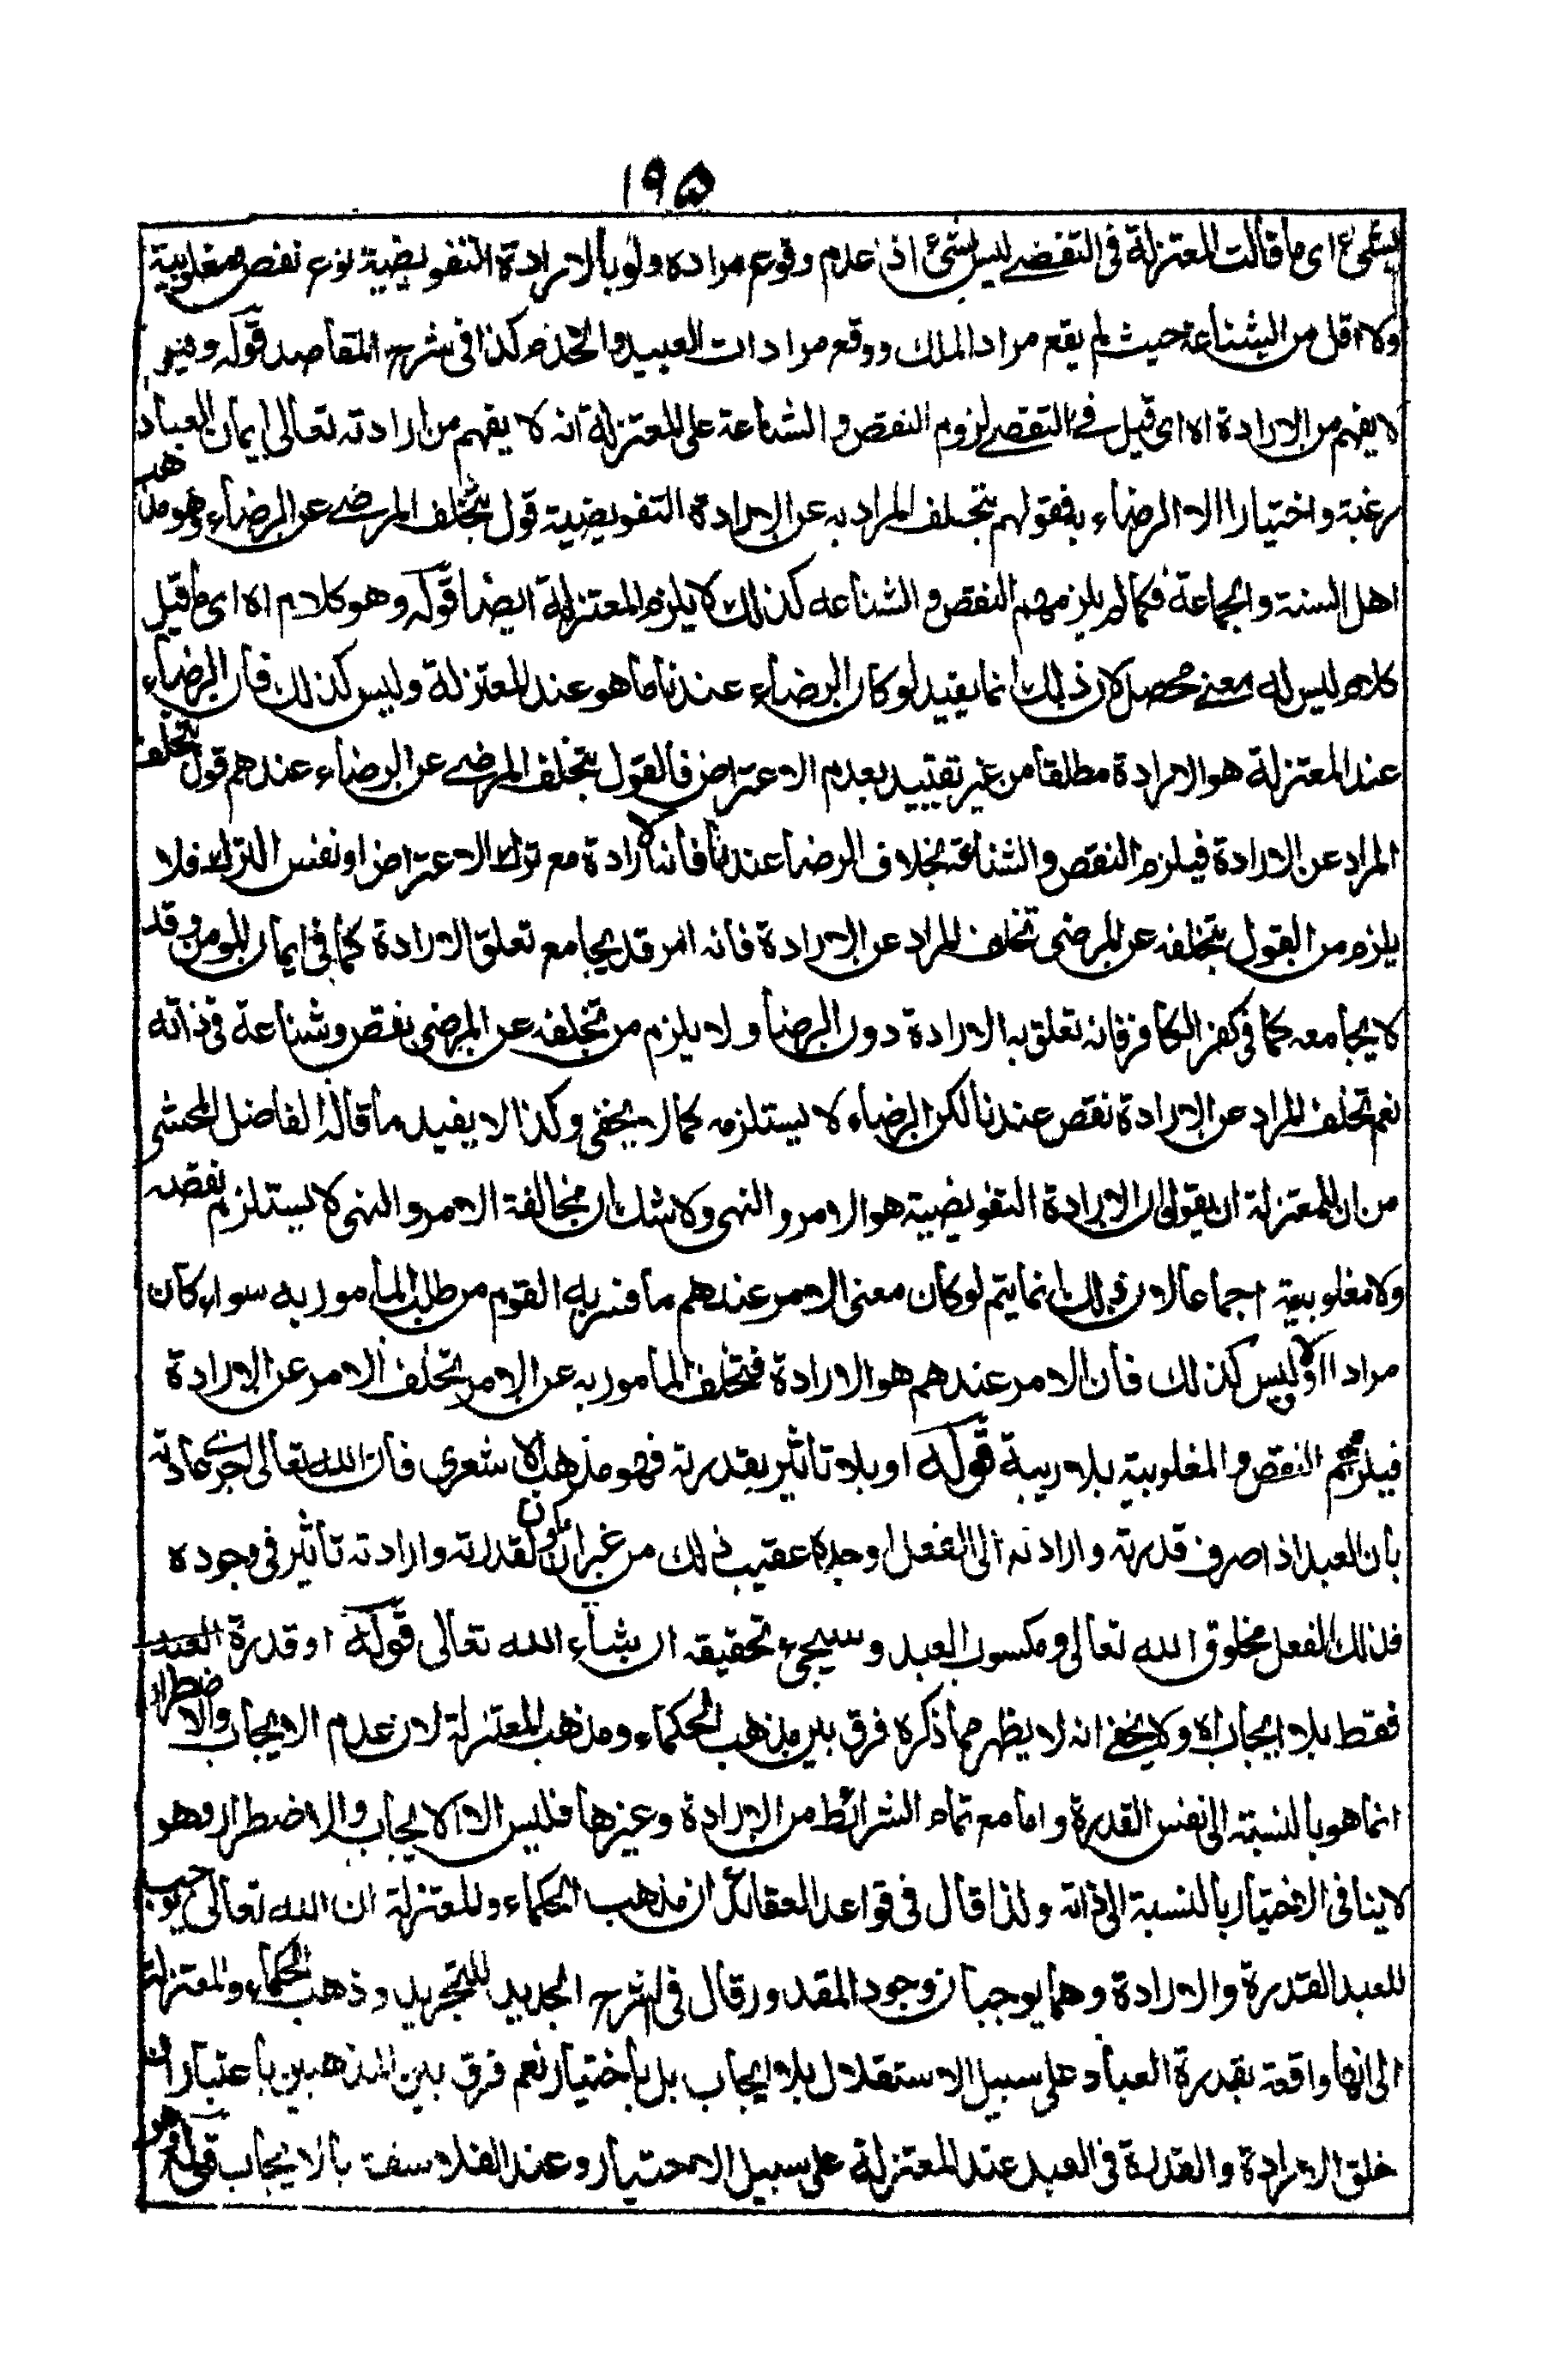 ١٩٥
بشئ اى ما قالت المعتزلة فى التفصے ليس بشئ اذ عدم وقوع مراده ولو بالارادة التفويضية نوع نقص ومغلوبية
ولا اقل من الشناعة حيث لم يقع مراد الملك ووقع مرادات العبيد والخدم كذا فى شرح المقاصد قوله وقيل
لا يفهم من الارادة اه اى قيل فے التفصے لزوم النقص والشناعة على المعتزلة انه لا يفهم من ارادته تعالى ايمان العباد
رغبة واختيارا الا الرضاء به فقولهم بتخلف المراد به عن الارادة التفويضية قول بتخلف المرضے عن الرضاء وهو مذهب
اهل السنة والجماعة فكما لم يلزمهم النقص والشناعه كذلك لا يلزم المعتزلة ايضا قوله وهو كلام اه اى ما قيل
كلام ليس له معنے محصل لان ذلك انما يفيد لو كان الرضاء عندنا ما هو عند المعتزلة وليس كذلك فان الرضاء
عند المعتزلة هو الارادة مطلقا من غير تقييد بعدم الاعتراض فالقول بتخلف المرضے عن الرضاء عندهم قول بتخلف
المراد عن الارادة فيلزم النقص والشناعة بخلاف الرضا عندنا فانه الارادة مع ترك الاعتراض او نفس الترك فلا
يلزم من القول بتخلفه عن المرضى تخلف المراد عن الارادة فانه امر قد يجامع تعلق الارادة كما فى ايمان المومن وقد
لا يجامعه كما فى كفر الكافر فانه تعلق به الارادة دون الرضا ولا يلزم من تخلفه عن المرضى نقص وشناعة فى ذاته
نعم تخلف المراد عن الارادة نقص عندنا لكن الرضاء لا يستلزمه كما لا يخفى وكذا لا يفيد ما قاله الفاضل المحشى
من ان للمعتزلة ان يقولوا ان الارادة التفويضية هو الامر والنهى ولا شك ان مخالفة الامر والنهى لا يستلزم نقصه
ولا مغلوبية اجماعا لان ذلك انما يتم لو كان معنى الامر عندهم ما فسر به القوم من طلب المامور به سواء كان
مرادا او لا وليس كذلك فان الامر عندهم هو الارادة فتخلف المامور به عن الامر تخلف الامر عن الارادة
فيلزمهم النقص والمغلوبية بلا ريبة قوله او بلا تاثير بقدرته فهو مذهب الاشعرى فان الله تعالى اجرى عادته
بان العبد اذا صرف قدرته وارادته الى الفعل اوجده عقيب ذلك من غير ان يكون لقدرته وارادته تاثير فى وجوده
فذلك الفعل مخلوق الله تعالى ومكسوب العبد وسيجئ تحقيقه ان شاء الله تعالى قوله او قدرة العبد
فقط بلا ايجاب اه ولا يخفے انه لا يظهر مما ذكره فرق بين مذهب الحكماء ومذهب المعتزلة لان عدم الايجاب والاضطرار
انما هو بالنسبة الى نفس القدرة واما مع تمام الشرائط من الارادة وغيرها فليس الا الايجاب والاضطرار وهو
لا ينافى الاختيار بالنسبة الى ذاته ولذا قال فى قواعد العقائد ان مذهب الحكماء والمعتزلة ان الله تعالى يوجب
للعبد القدرة والارادة وهما يوجبان وجود المقدور قال فى الشرح الجديد للتجريد وذهب الحكماء والمعتزلة
الى انها واقعة بقدرة العباد على سبيل الاستقلال بلا ايجاب بل باختيار نعم فرق بين المذهبين باعتبار ان
خلق الارادة والقدرة فى العبد عند المعتزلة على سبيل الاختيار وعند الفلاسفة بالايجاب قوله فهو